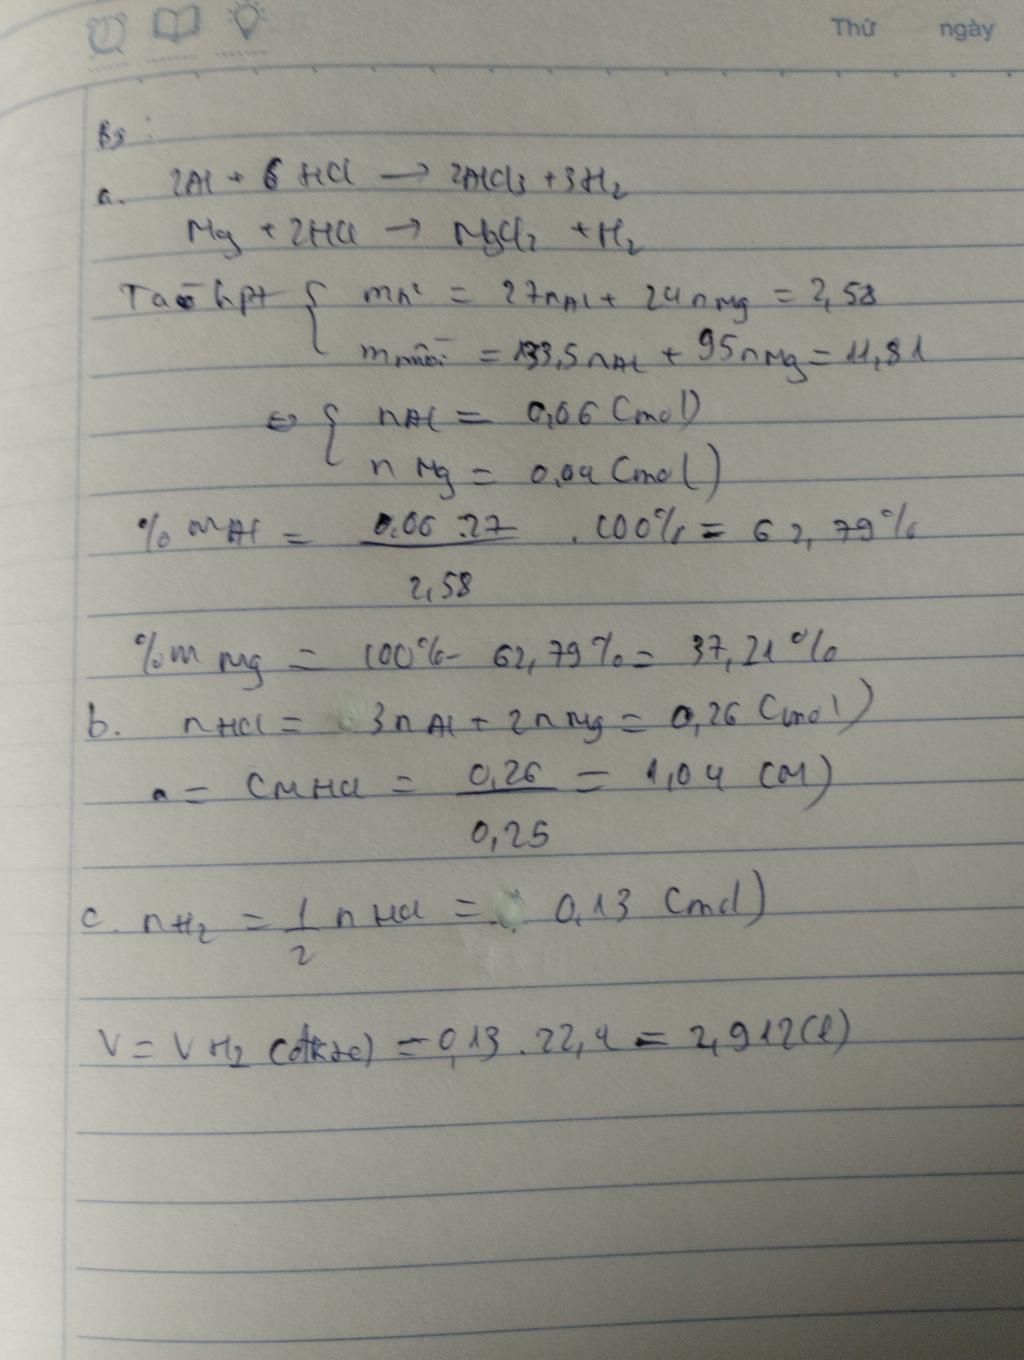 Thứ ngày
B3:
a. 2Al + 6HCl → 2AlCl3 + 3H2
Mg + 2HCl → MgCl2 + H2
Ta có hpt { mhh = 27nAl + 24nMg = 2,58
mmuối = 133,5nAl + 95nMg = 11,81
⇔ { nAl = 0,06 (mol)
nMg = 0,04 (mol)
%mAl = 0,06.27 / 2,58 . 100% = 62,79%
%mMg = 100% - 62,79% = 37,21%
b. nHCl = 3nAl + 2nMg = 0,26 (mol)
a = CMHCl = 0,26 / 0,25 = 1,04 (M)
c. nH2 = 1/2 nHCl = 0,13 (mol)
V = VH2 (đktc) = 0,13 . 22,4 = 2,912 (l)